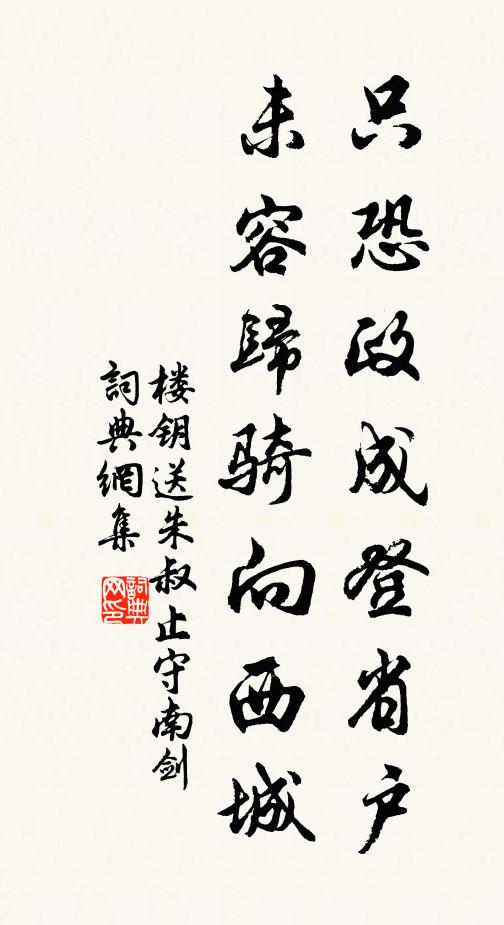 只恐政成登省户
未容歸骑向西城
楼钥送朱叔止守南剑
詞典網集
詞典网印